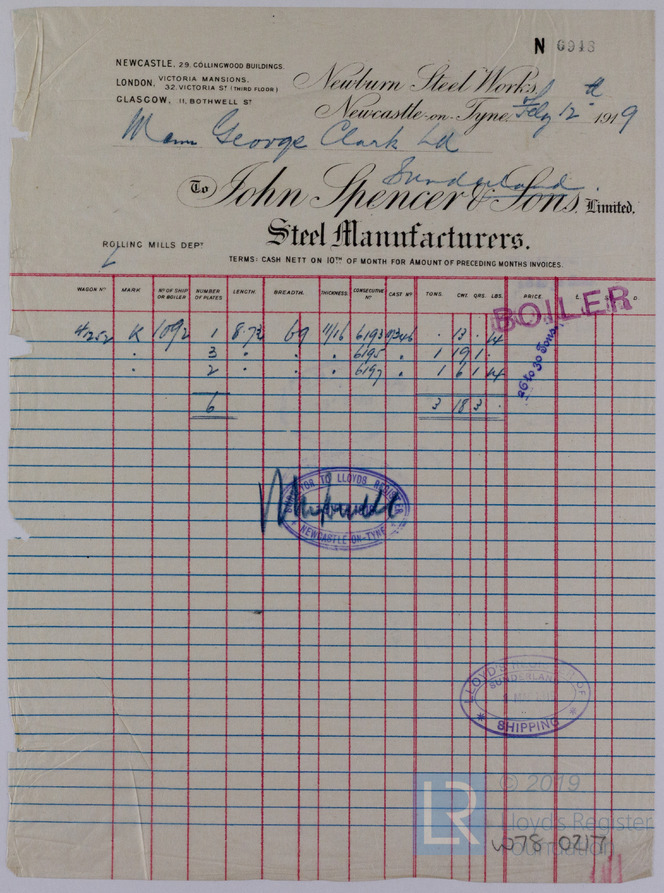 N 0943
NEWCASTLE, 29, COLLINGWOOD BUILDINGS.
LONDON, VICTORIA MANSIONS,
32, VICTORIA ST (THIRD FLOOR)
GLASGOW, 11, BOTHWELL ST
Newburn Steel Works,
Newcastle-on-Tyne, Feby 12th 1919
George Clark Ld
Sunderland.
To John Spencer & Sons, Limited.
Steel Manufacturers.
ROLLING MILLS DEPT
TERMS: CASH NETT ON 10TH OF MONTH FOR AMOUNT OF PRECEDING MONTHS INVOICES.
WAGON No MARK No OF SHIP OR BOILER NUMBER OF PLATES LENGTH. BREADTH. THICKNESS. CONSECUTIVE No CAST No TONS. CWT. QRS. LBS. PRICE. £.
BOILER
K 1092 1 69 11/16 6193 . 13 . 14
. . 3 . . . 6195 . 1 19 1 .
. . 2 . . . 6197 . 1 6 1 14
6 3 18 3 .
26 to 30 Tons.
SURVEYOR TO LLOYDS REGISTER
NEWCASTLE-ON-TYNE
LLOYD'S REGISTER OF
SUNDERLAND
SHIPPING
LR
© 2019
Lloyd's Register
Foundation
W78 0217